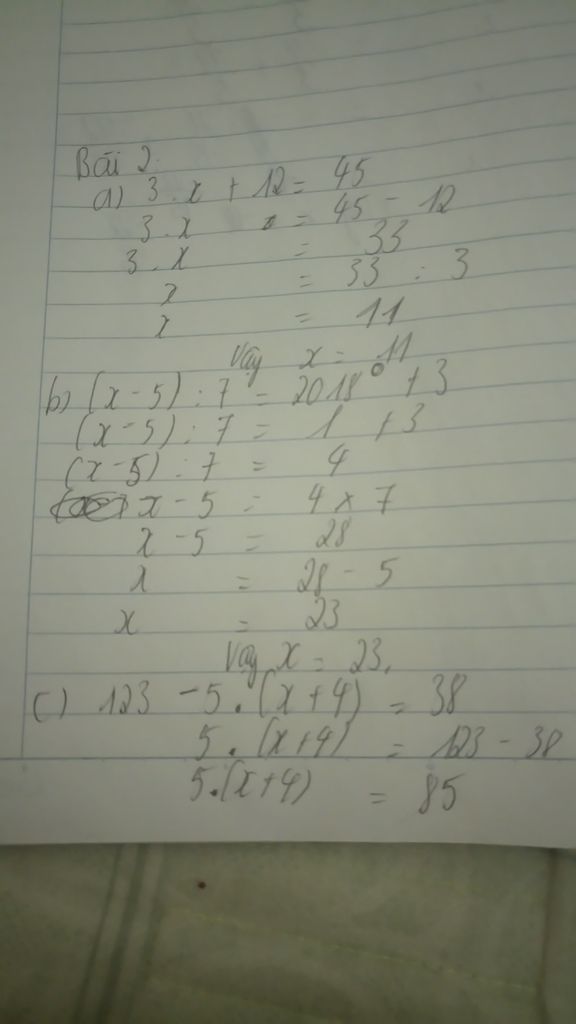 Bài 2:
a) 3 . x + 12 = 45
3 . x = 45 - 12
3 . x = 33
x = 33 : 3
x = 11
Vậy x = 11
b) (x - 5) : 7 = 2018⁰ + 3
(x - 5) : 7 = 1 + 3
(x - 5) : 7 = 4
x - 5 = 4 x 7
x - 5 = 28
x = 28 - 5
x = 23
Vậy x = 23.
c) 123 - 5 . (x + 4) = 38
5 . (x + 4) = 123 - 38
5 . (x + 4) = 85